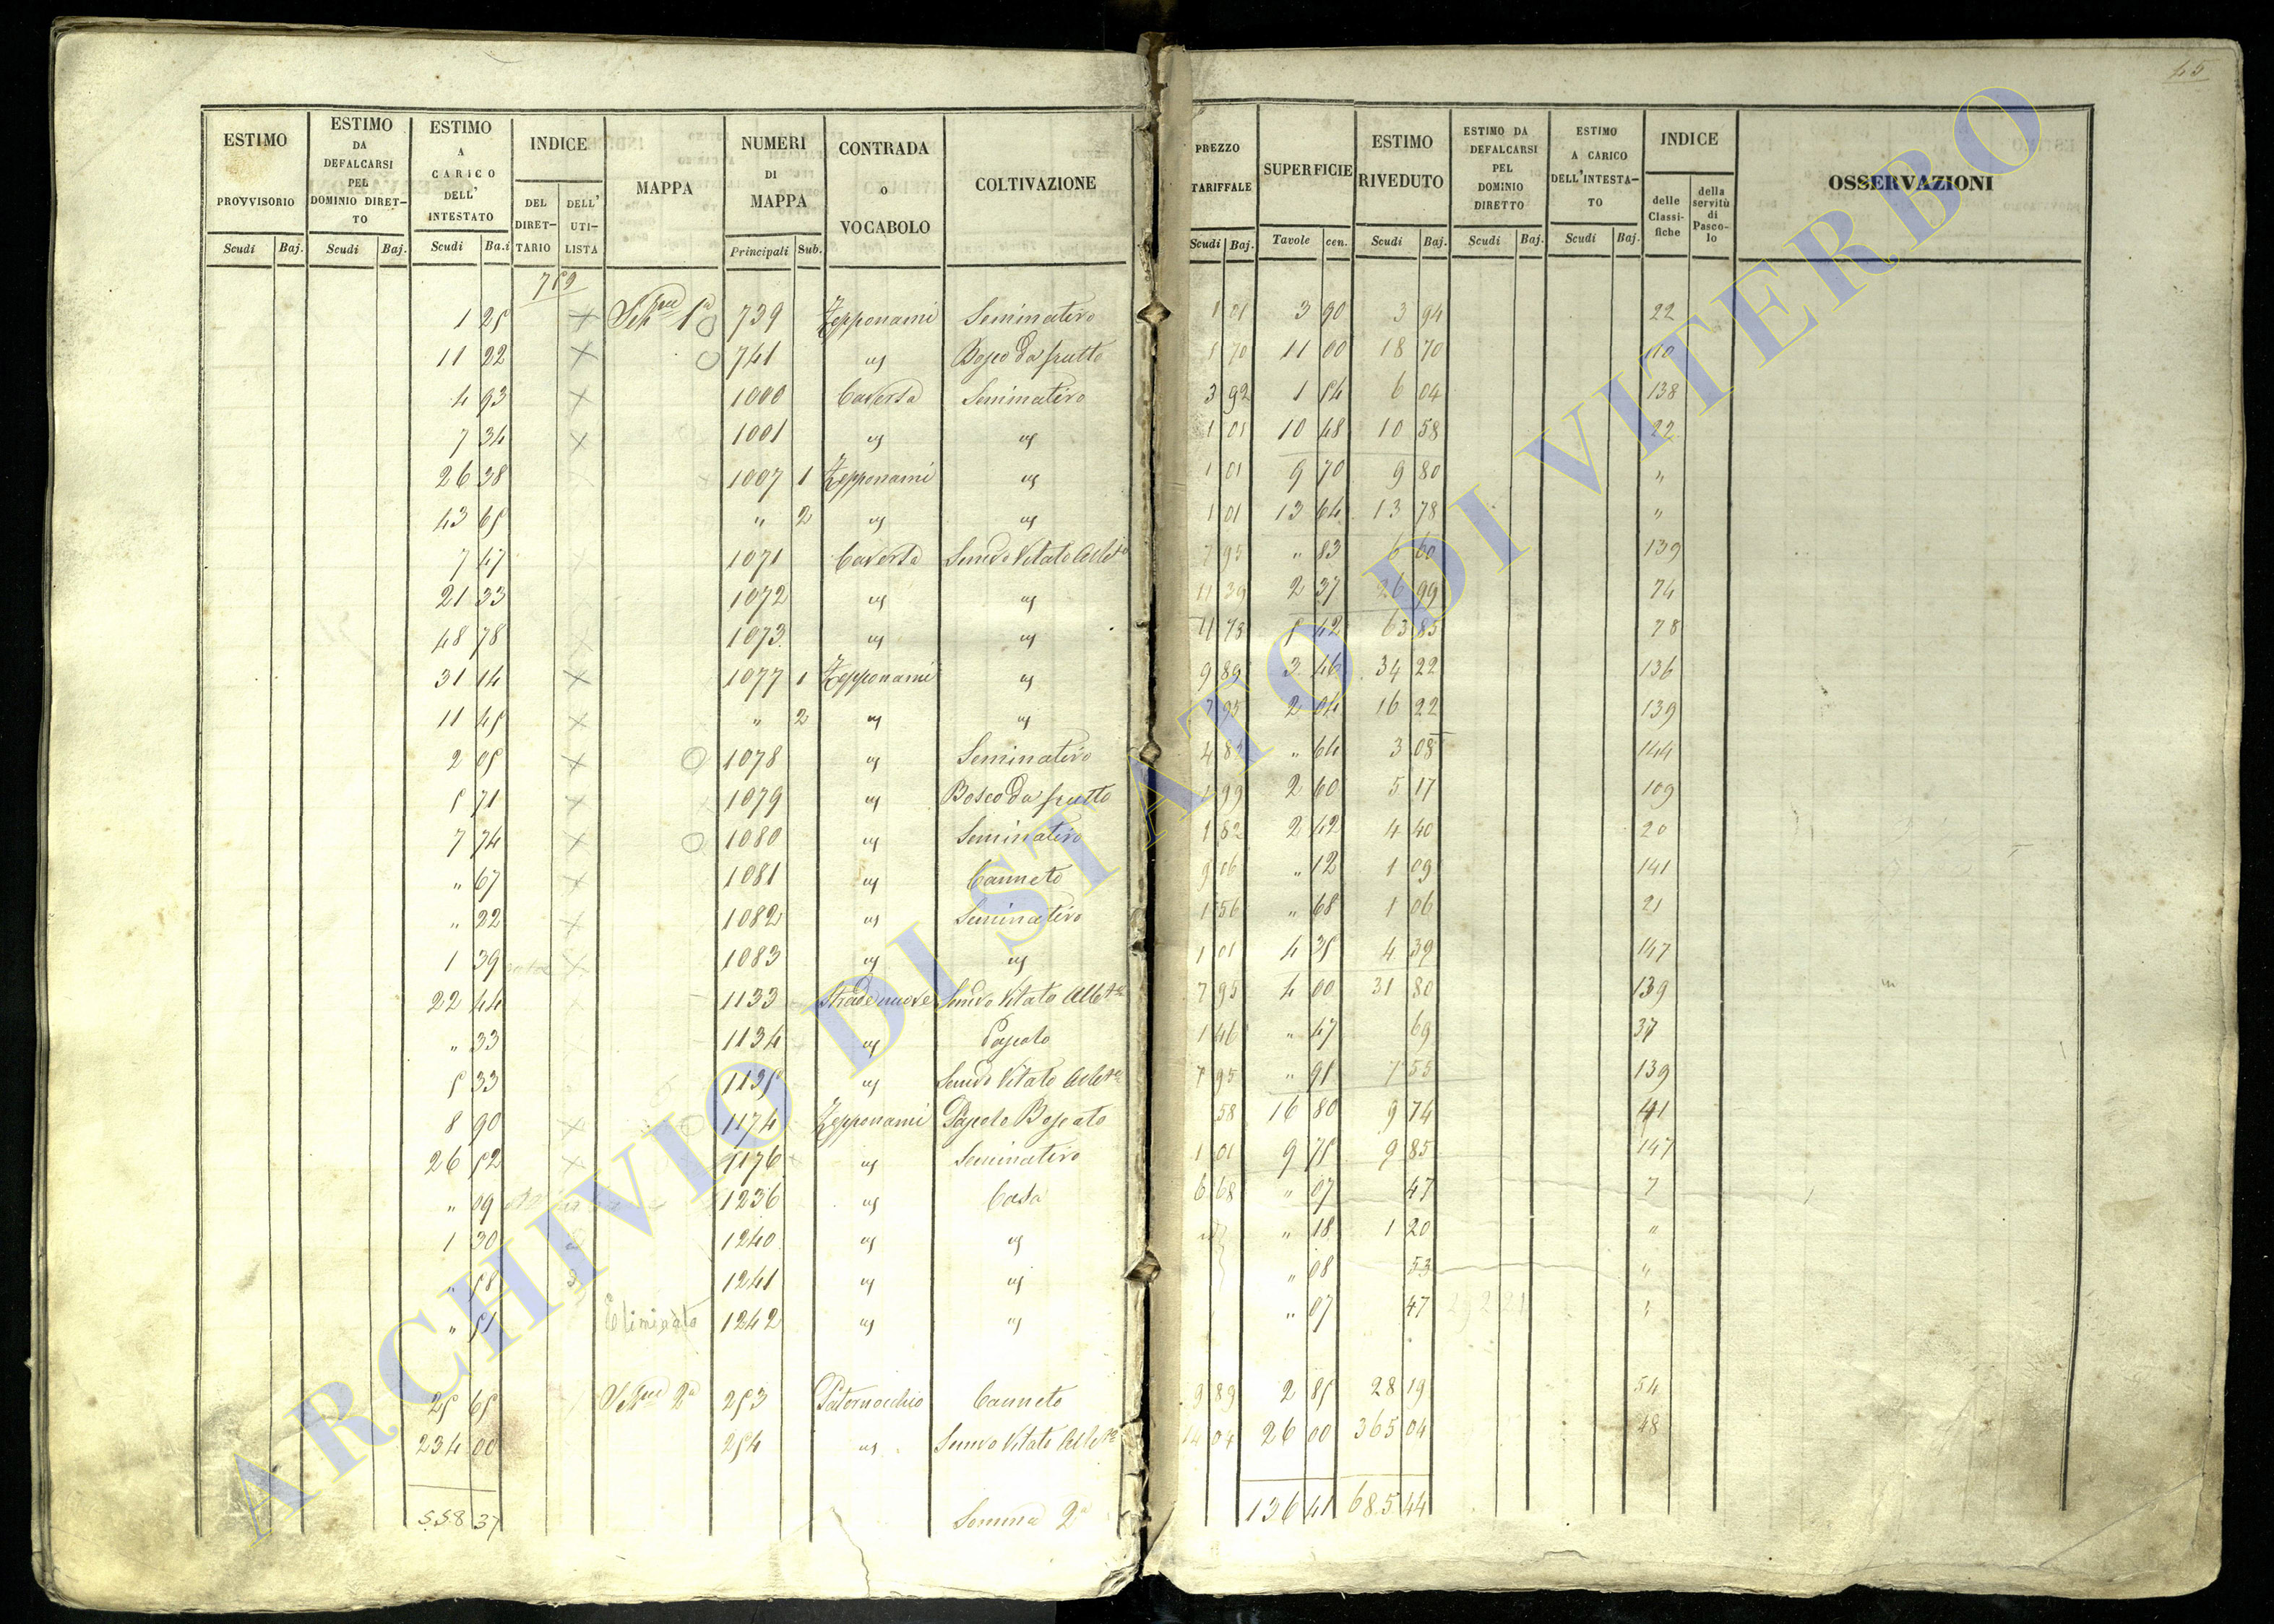 45
ESTIMO PROVVISORIO Scudi Baj. ESTIMO DA DEFALCARSI PEL DOMINIO DIRET-TO Scudi Baj. ESTIMO A CARICO DELL' INTESTATO Scudi Ba.i INDICE DEL DIRET-TARIO DELL' UTI-LISTA MAPPA NUMERI DI MAPPA Principali Sub. CONTRADA o VOCABOLO COLTIVAZIONE PREZZO TARIFFALE Scudi Baj. SUPERFICIE Tavole cen. ESTIMO RIVEDUTO Scudi Baj. ESTIMO DA DEFALCARSI PEL DOMINIO DIRETTO Scudi Baj. ESTIMO A CARICO DELL'INTESTA-TO Scudi Baj. INDICE delle Classi-fiche della servitù di Pasco-lo OSSERVAZIONI
759
1 25 × 1a 739 Zepponami Seminativo 1 01 3 90 3 94 22
11 22 × 741 " Bosco da frutto 1 70 11 00 18 70 110
4 93 × 1000 Caversa Seminativo 3 92 1 54 6 04 138
7 34 × 1001 " " 1 01 10 48 10 58 22
26 38 1007 1 Zepponami " 1 01 9 70 9 80 "
43 65 " 2 " " 1 01 13 64 13 78 "
7 47 1071 Caversa Semvo Vitato Albto 7 95 " 83 6 60 139
21 33 1072 " " 11 39 2 37 26 99 74
48 78 1073 " " 11 78 5 42 63 85 78
31 14 × 1077 1 Zepponami " 9 89 3 46 34 22 136
11 45 × " 2 " " 7 95 2 04 16 22 139
2 05 × 1078 " Seminativo 4 81 " 64 3 08 144
5 71 × 1079 " Bosco da frutto 1 99 2 60 5 17 109
7 74 × 1080 " Seminativo 1 82 2 42 4 40 20
" 67 × 1081 " Canneto 9 06 " 12 1 09 141
" 22 × 1082 " Seminativo 1 56 " 68 1 06 21
1 39 × 1083 " " 1 01 4 35 4 39 147
22 44 1133 Strade nuove Semvo Vitato Albto 7 95 4 00 31 80 139
" 33 1134 " Pascolo 1 46 " 47 69 37
5 33 1135 " Semvo Vitato Albto 7 95 " 95 7 55 139
8 90 × 1174 Zepponami Pascolo Boscato 58 16 80 9 74 41
26 52 × 1176 " Seminativo 1 01 9 75 9 85 147
" 09 1236 " Casa 6 68 " 07 47 7
1 30 1240 " " " 18 1 20 "
" 58 1241 " " " 08 53 "
" 51 Eliminato 1242 " " " 07 47 "
25 65 2a 253 Paternocchio Canneto 9 89 2 85 28 19 54
234 00 254 " Semvo Vitato Albto 14 04 26 00 365 04 48
558 37 Somma 2a 136 41 685 44
ARCHIVIO DI STATO DI VITERBO